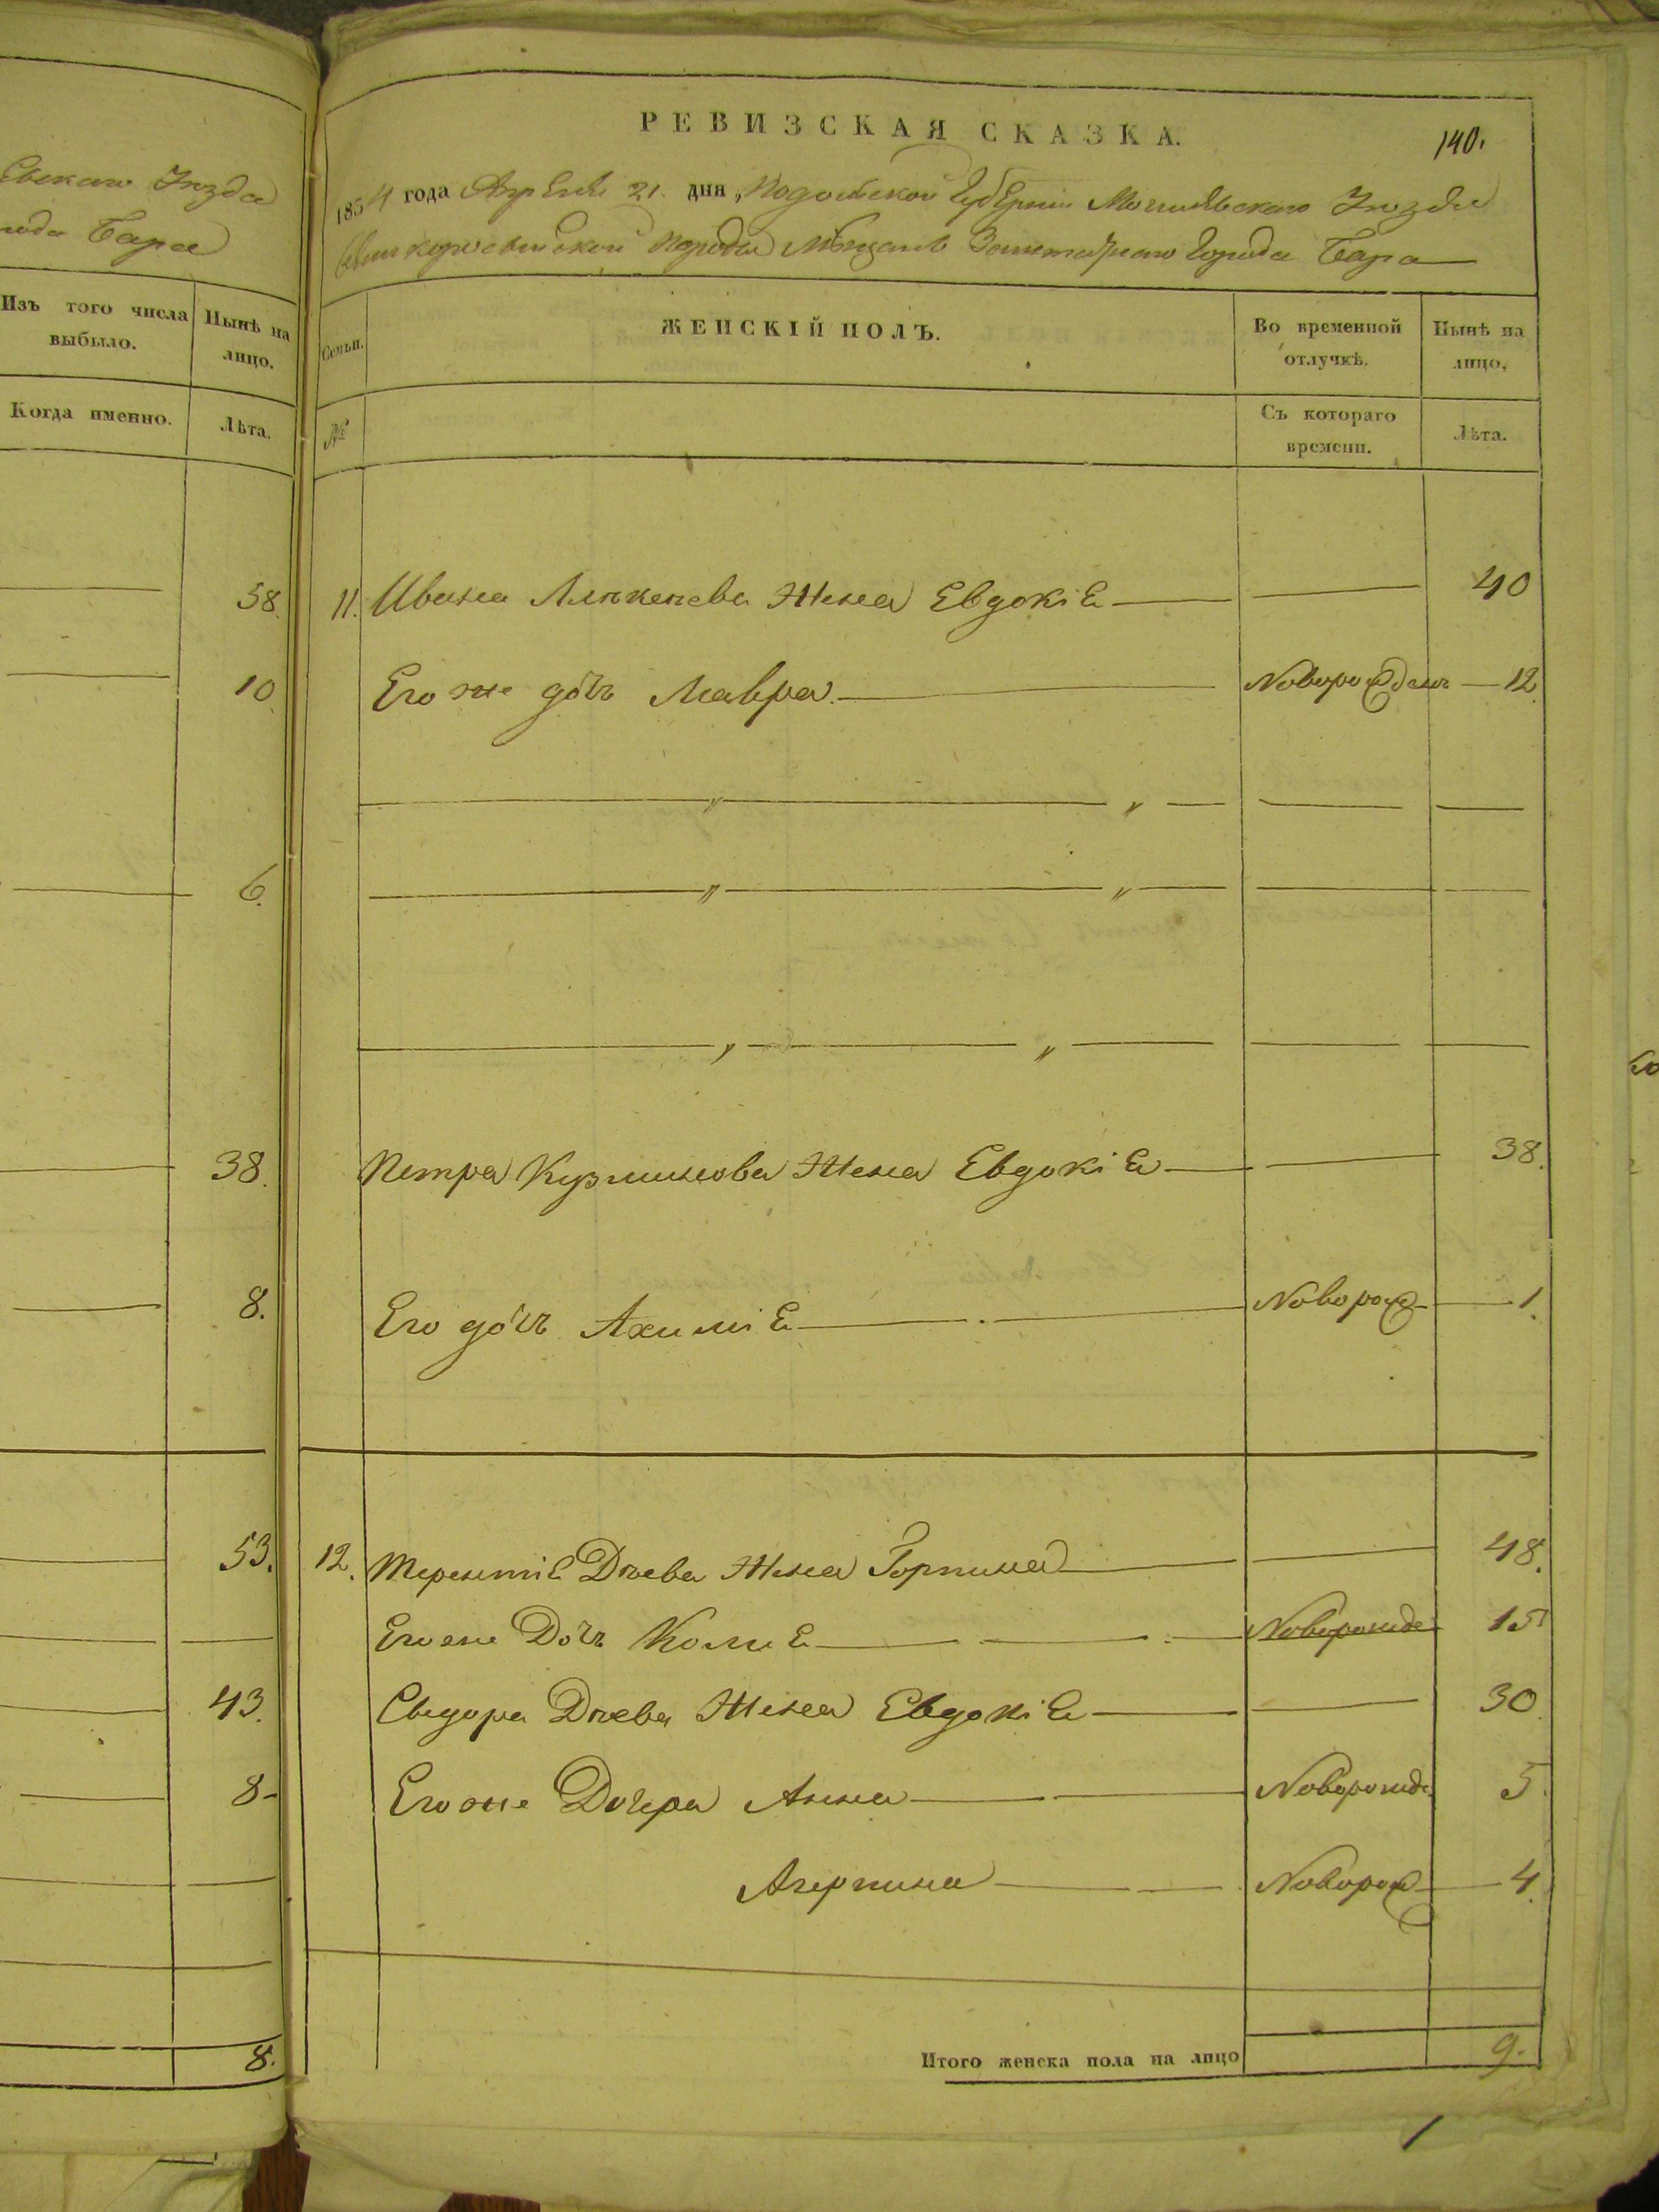 Евскаго Уѣзда
рода Бара
Изъ того числа выбыло.
Нынѣ на лицо.
Когда именно.
Лѣта.
58.
10
6.
38.
8.
53.
43.
8-
8.
РЕВИЗСКАЯ СКАЗКА.
140.
1854 года Апрѣля 21. дня, Подольской Губерніи Могилевскаго Уѣзда
породы Мѣщанъ Заштатнаго Города Бара
Семьи.
ЖЕНСКІЙ ПОЛЪ.
Во временной отлучкѣ.
Нынѣ на лицо,
№
Съ котораго времени.
Лѣта.
11. Ивана Жена Евдокія 40
Его же дочь Мавра. Новорожденъ 12
Петра Кузминова Жена Евдокія 38.
Его дочь Новорож 1.
12. Терентія Жена Горпина 48.
Его же Дочь Новорожде 15
Жена Евдокія 30.
Его же Дочера Анна Новорожде 5.
Новорож 4.
Итого женска пола на лицо 9.